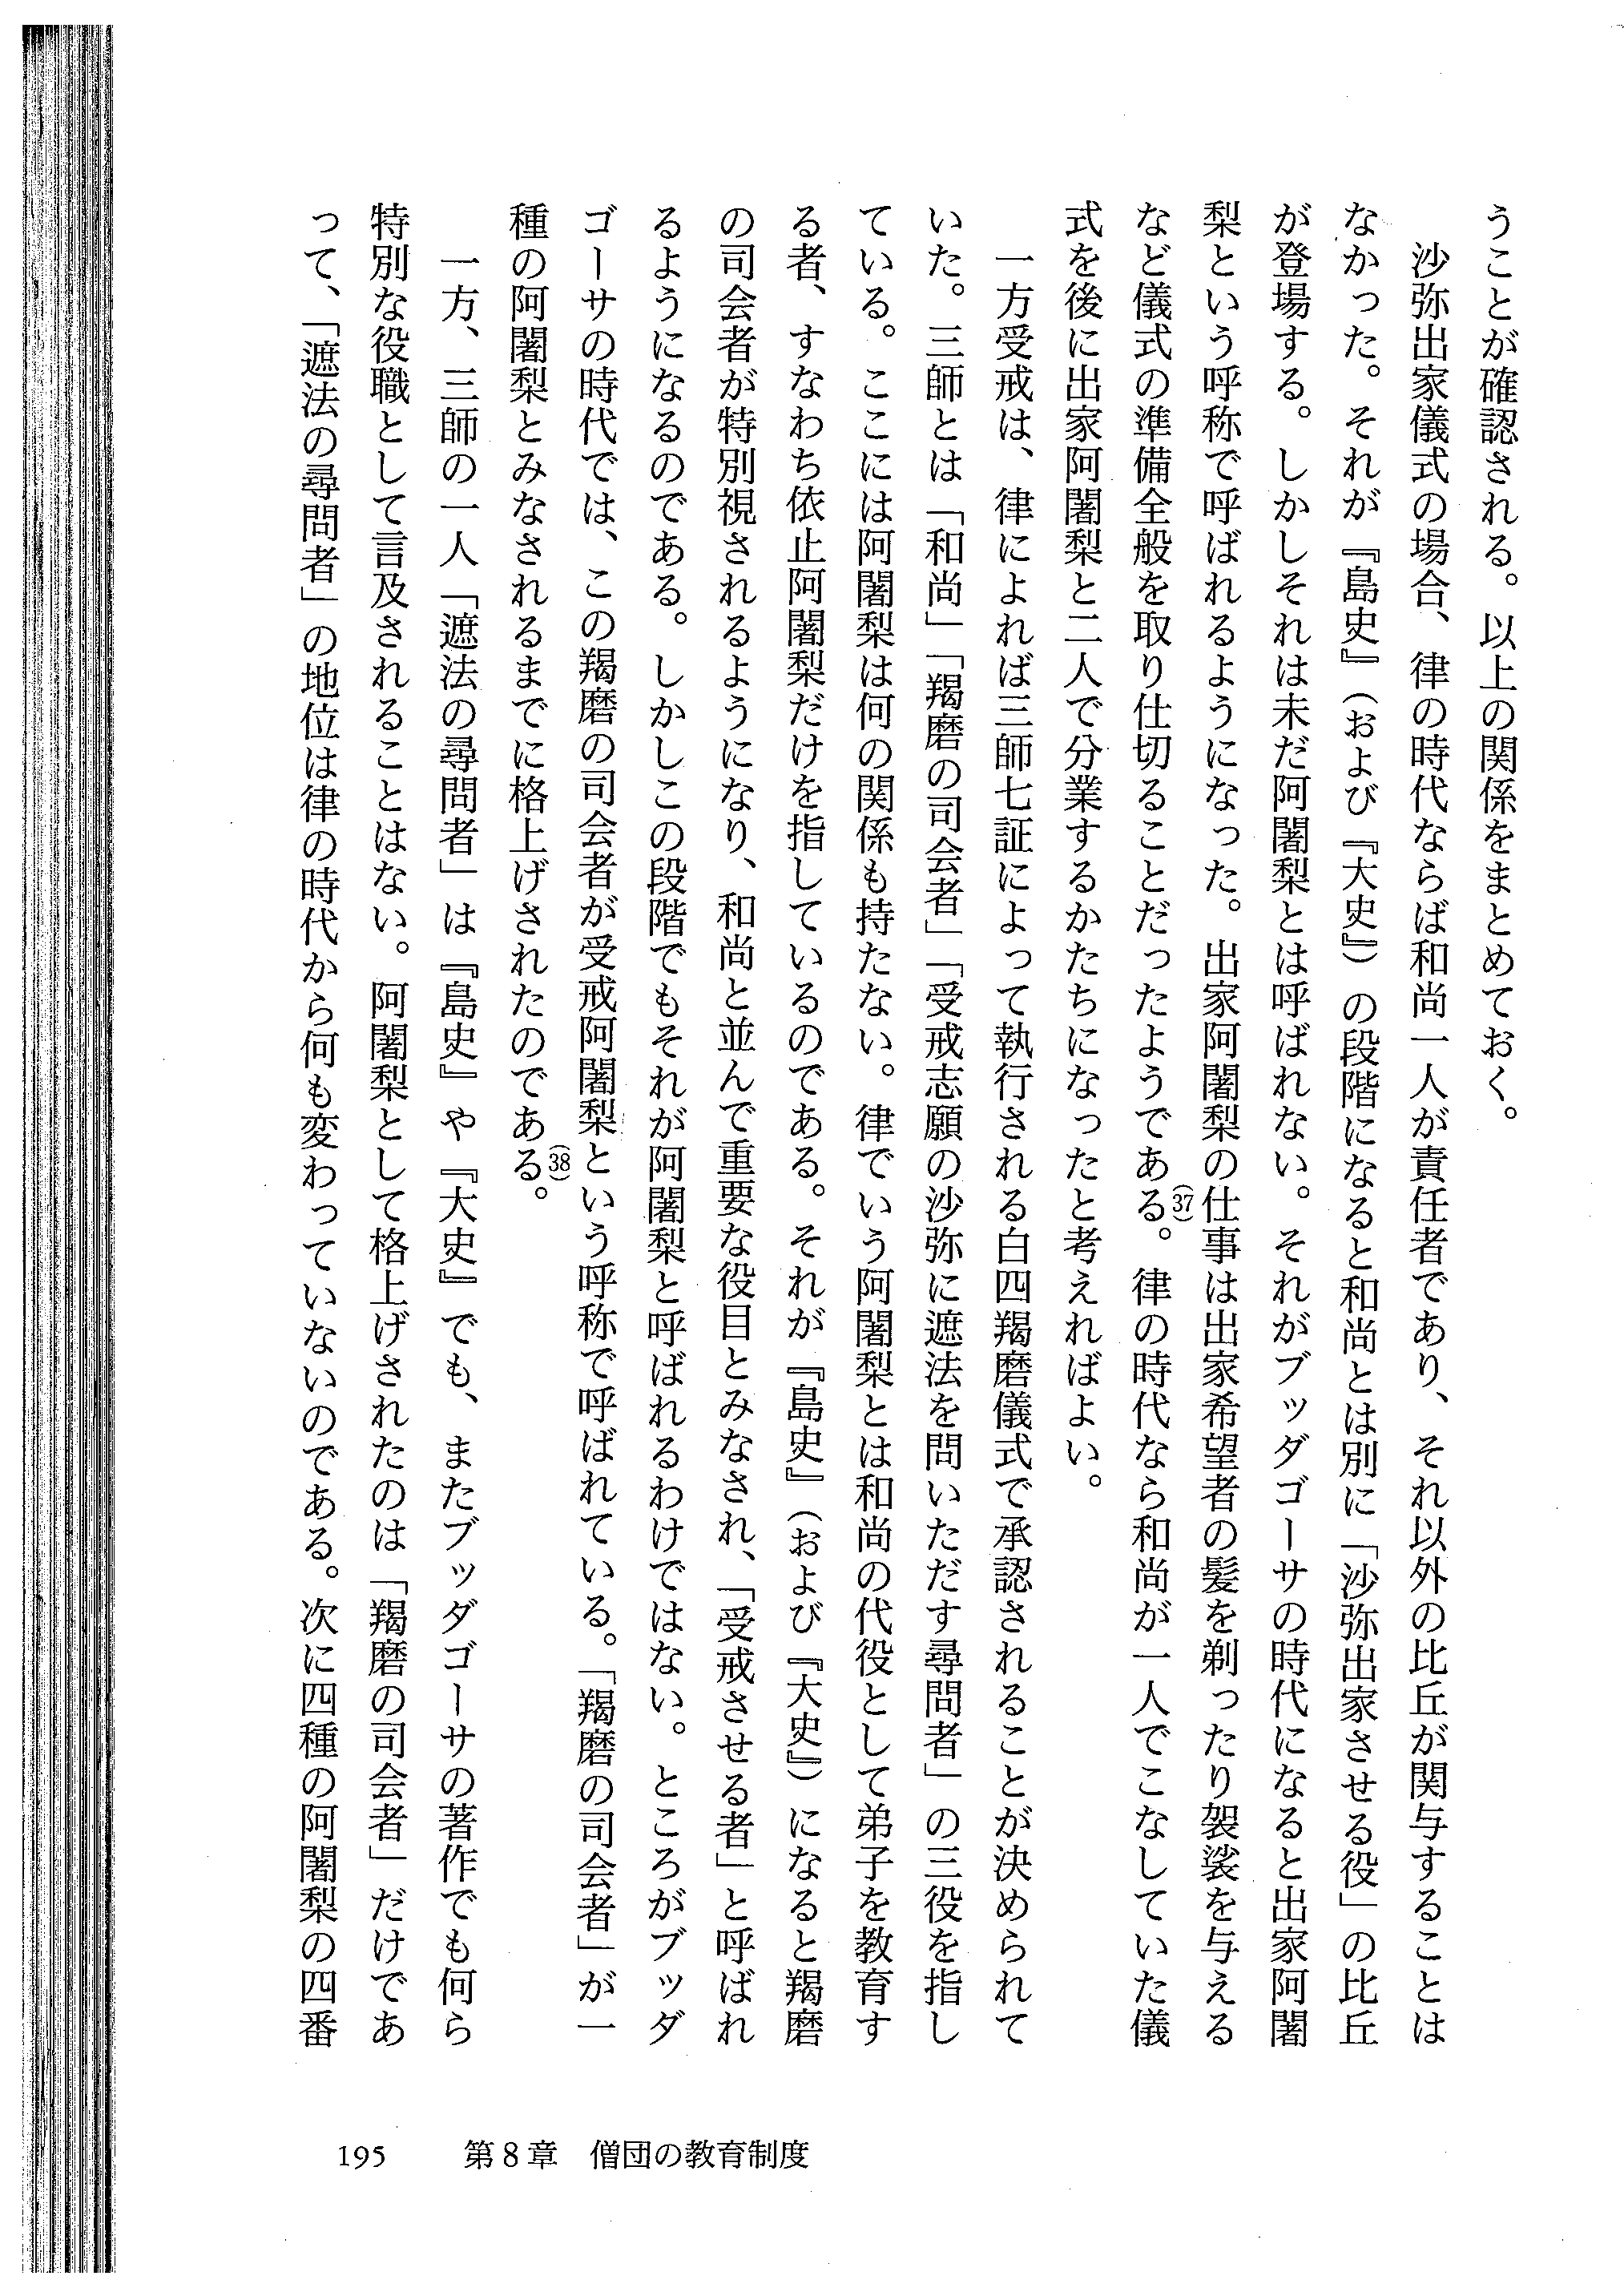 うことが確認される。以上の関係をまとめておく。
　沙弥出家儀式の場合、律の時代ならば和尚一人が責任者であり、それ以外の比丘が関与することは
なかった。それが『島史』（および『大史』）の段階になると和尚とは別に「沙弥出家させる役」の比丘
が登場する。しかしそれは未だ阿闍梨とは呼ばれない。それがブッダゴーサの時代になると出家阿闍
梨という呼称で呼ばれるようになった。出家阿闍梨の仕事は出家希望者の髪を剃ったり袈裟を与える
など儀式の準備全般を取り仕切ることだったようである(37)。律の時代なら和尚が一人でこなしていた儀
式を後に出家阿闍梨と二人で分業するかたちになったと考えればよい。
　一方受戒は、律によれば三師七証によって執行される白四羯磨儀式で承認されることが決められて
いた。三師とは「和尚」「羯磨の司会者」「受戒志願の沙弥に遮法を問いただす尋問者」の三役を指し
ている。ここには阿闍梨は何の関係も持たない。律でいう阿闍梨とは和尚の代役として弟子を教育す
る者、すなわち依止阿闍梨だけを指しているのである。それが『島史』（および『大史』）になると羯磨
の司会者が特別視されるようになり、和尚と並んで重要な役目とみなされ、「受戒させる者」と呼ばれ
るようになるのである。しかしこの段階でもそれが阿闍梨と呼ばれるわけではない。ところがブッダ
ゴーサの時代では、この羯磨の司会者が受戒阿闍梨という呼称で呼ばれている。「羯磨の司会者」が一
種の阿闍梨とみなされるまでに格上げされたのである(38)。
　一方、三師の一人「遮法の尋問者」は『島史』や『大史』でも、またブッダゴーサの著作でも何ら
特別な役職として言及されることはない。阿闍梨として格上げされたのは「羯磨の司会者」だけであ
って、「遮法の尋問者」の地位は律の時代から何も変わっていないのである。次に四種の阿闍梨の四番
195　第8章　僧団の教育制度